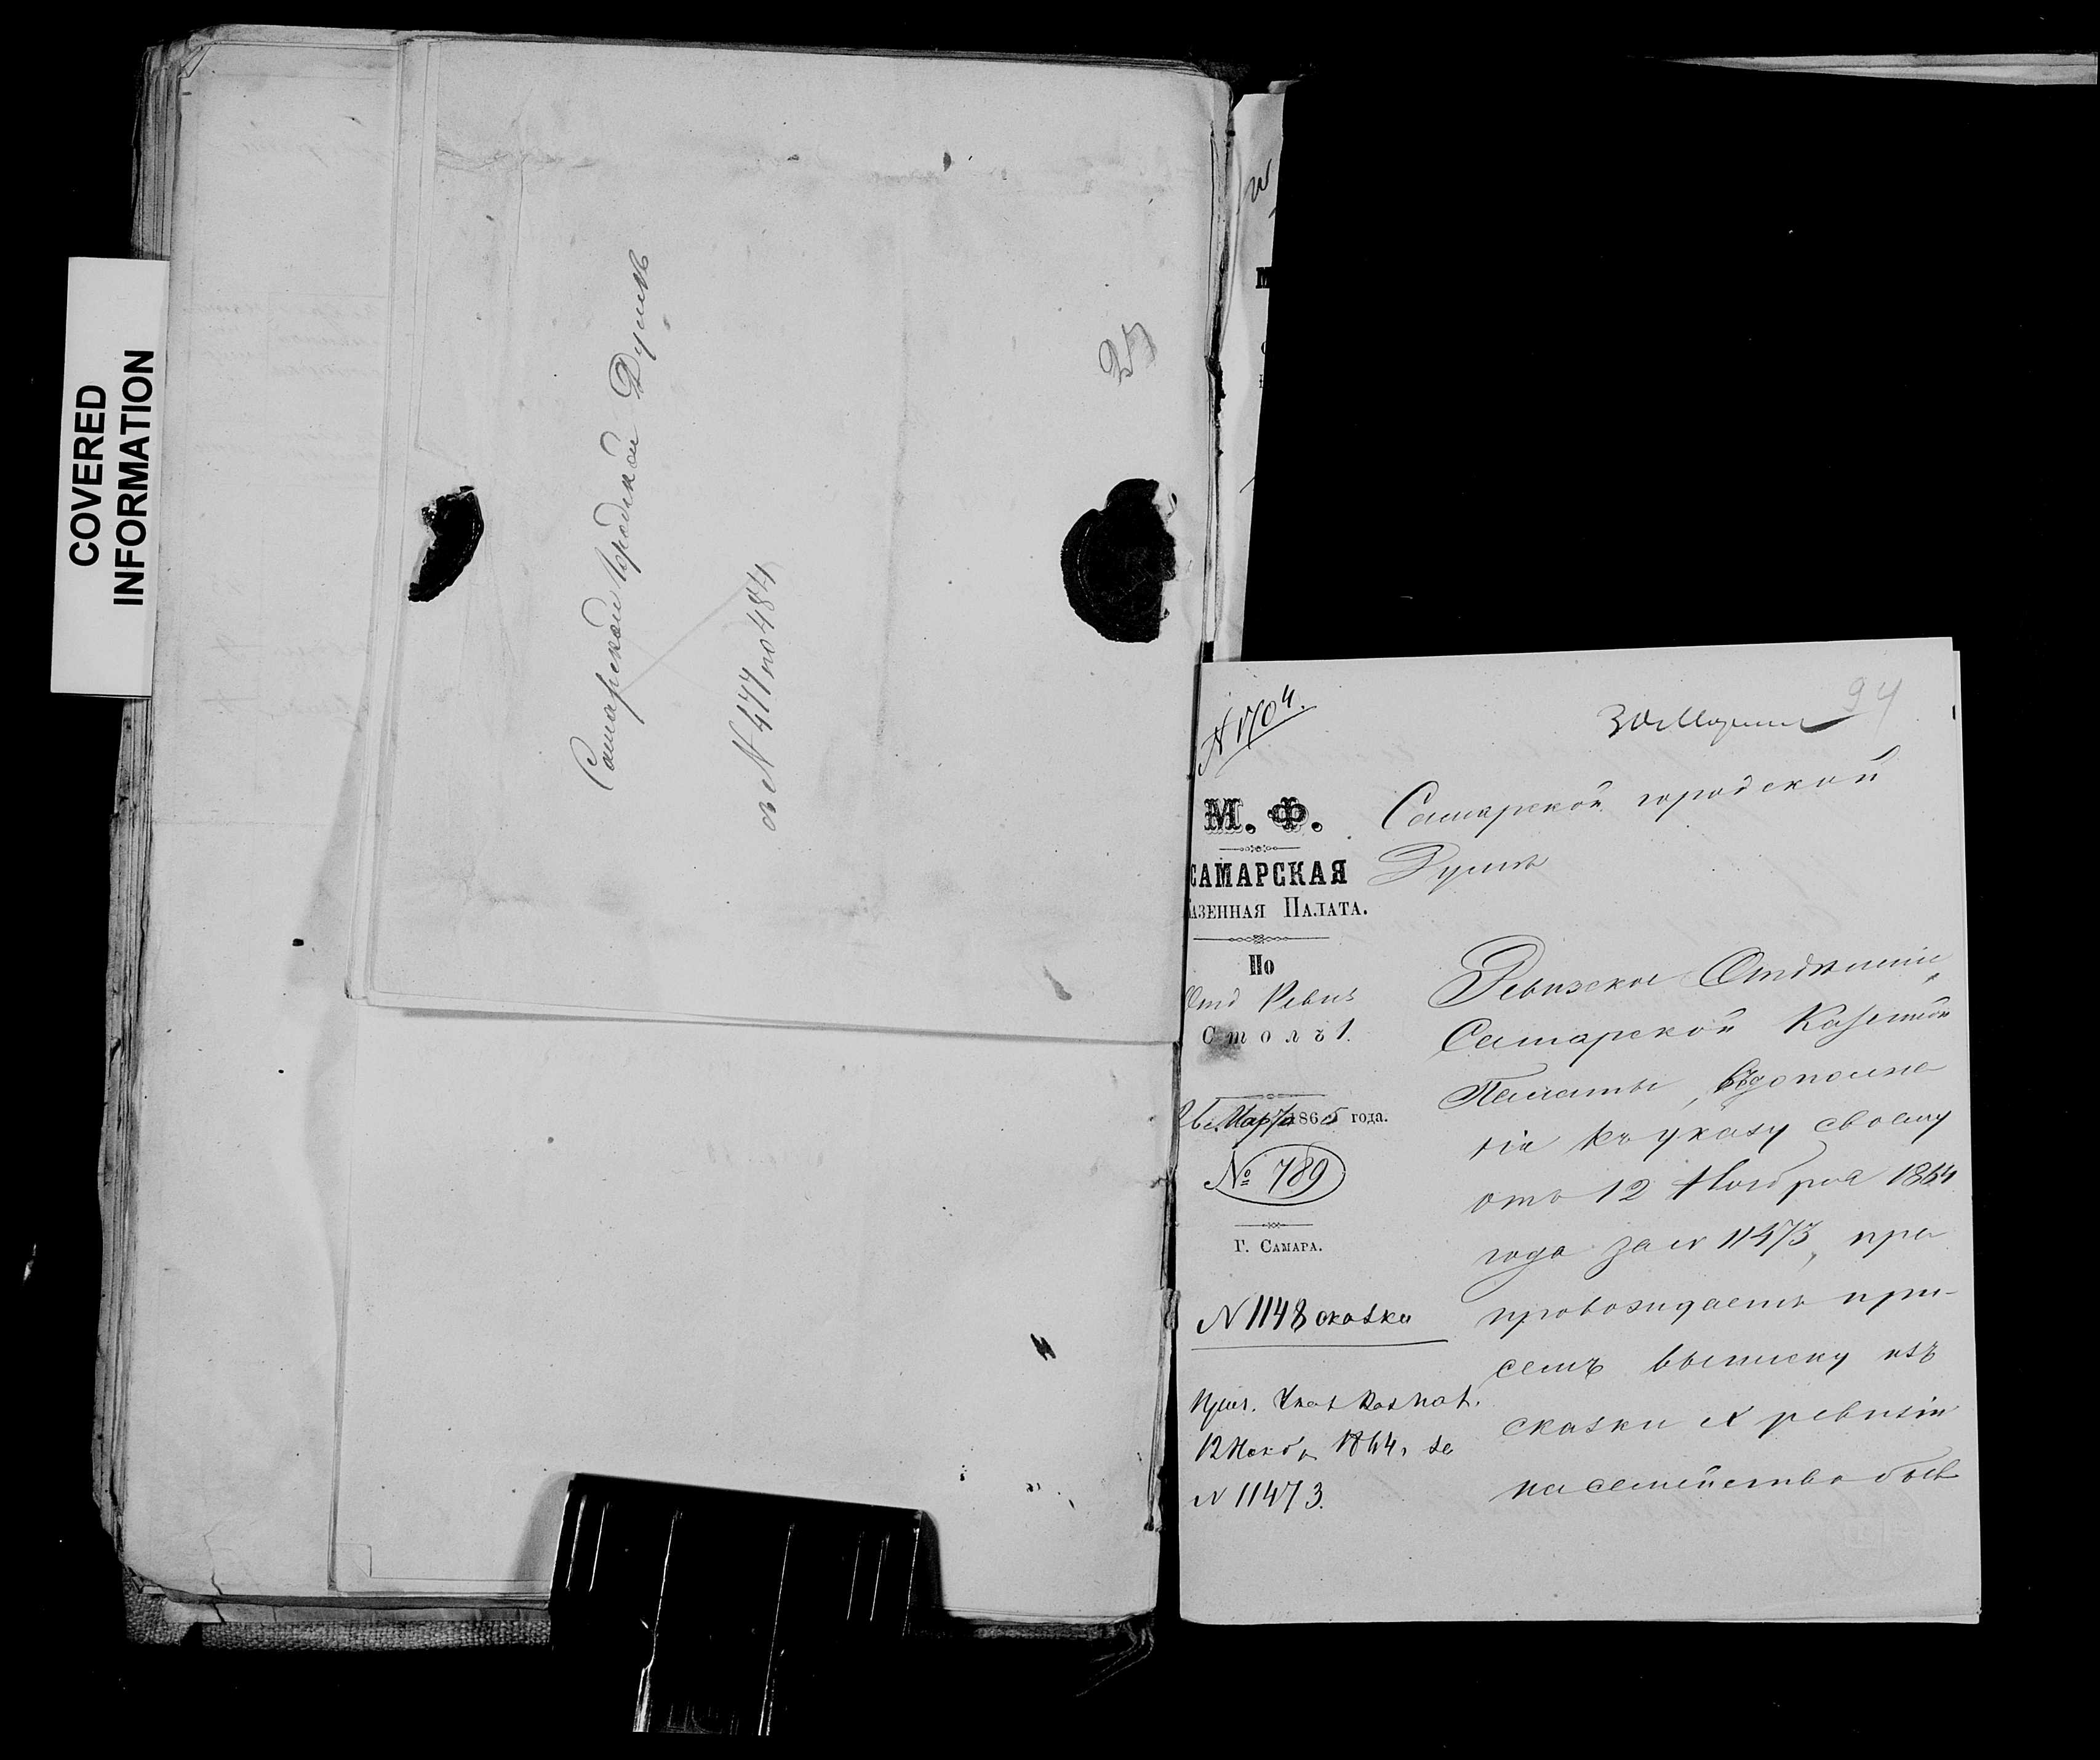 COVERED
INFORMATION
Самарской Городской Думѣ
съ № 477 по 484
25
№ 1704.
30 Марта
94
М. Ф.
САМАРСКАЯ
КАЗЕННАЯ ПАЛАТА.
По
Отд Ревиз
Столъ 1.
26 Марта 1865 года.
№ 789
Г. САМАРА.
№ 1148 сказки
12 Нояб. 1864, за
№ 11473.
Самарской городской
Думѣ
Ревизское Отдѣленіе
Самарской Казенной
Палаты, въ дополне
ніе къ указу своему
отъ 12 Ноября 1864
года за № 11473, пре
провождаетъ при-
семъ выписку изъ
сказки X ревизіи
на семейство быв